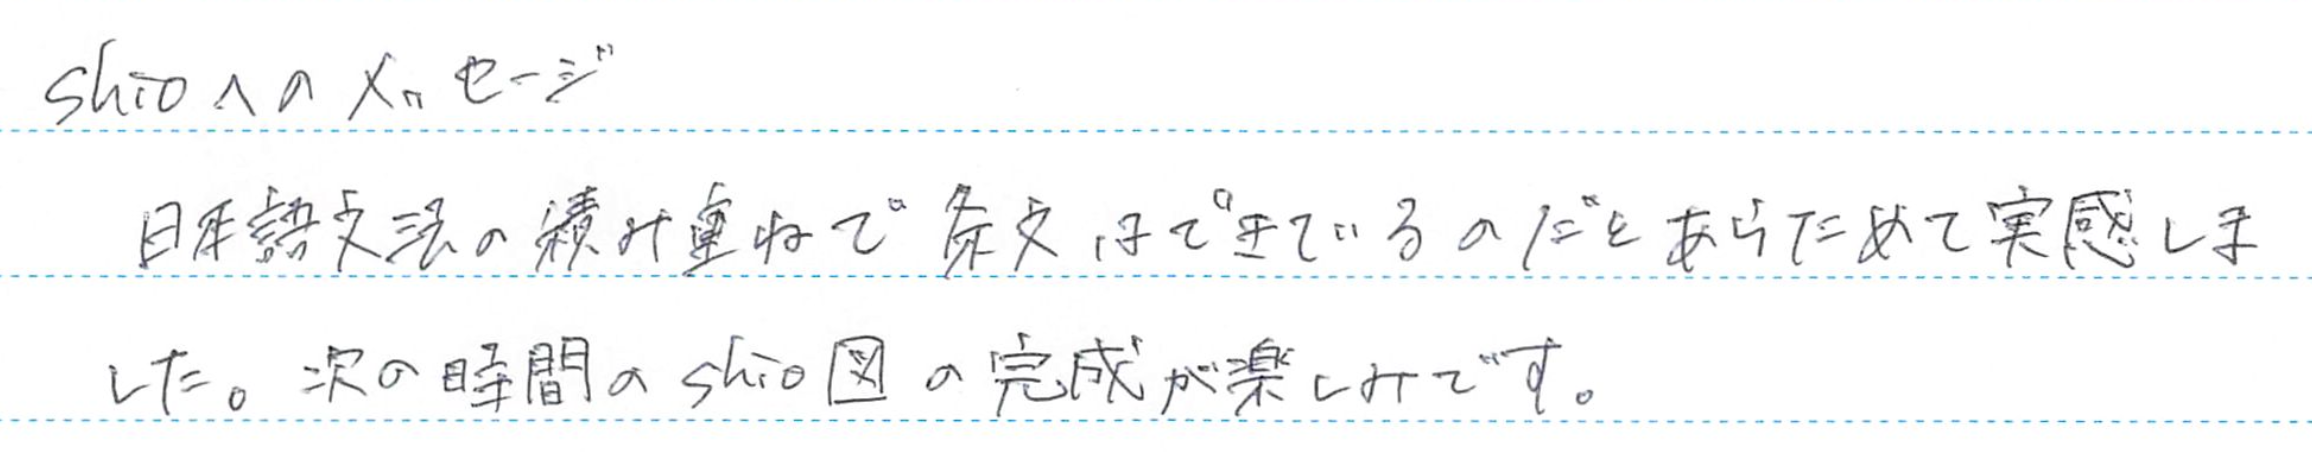 shioへのメッセージ
日本語文法の積み重ねで条文はできているのだとあらためて実感しま
した。次の時間のshio図の完成が楽しみです。